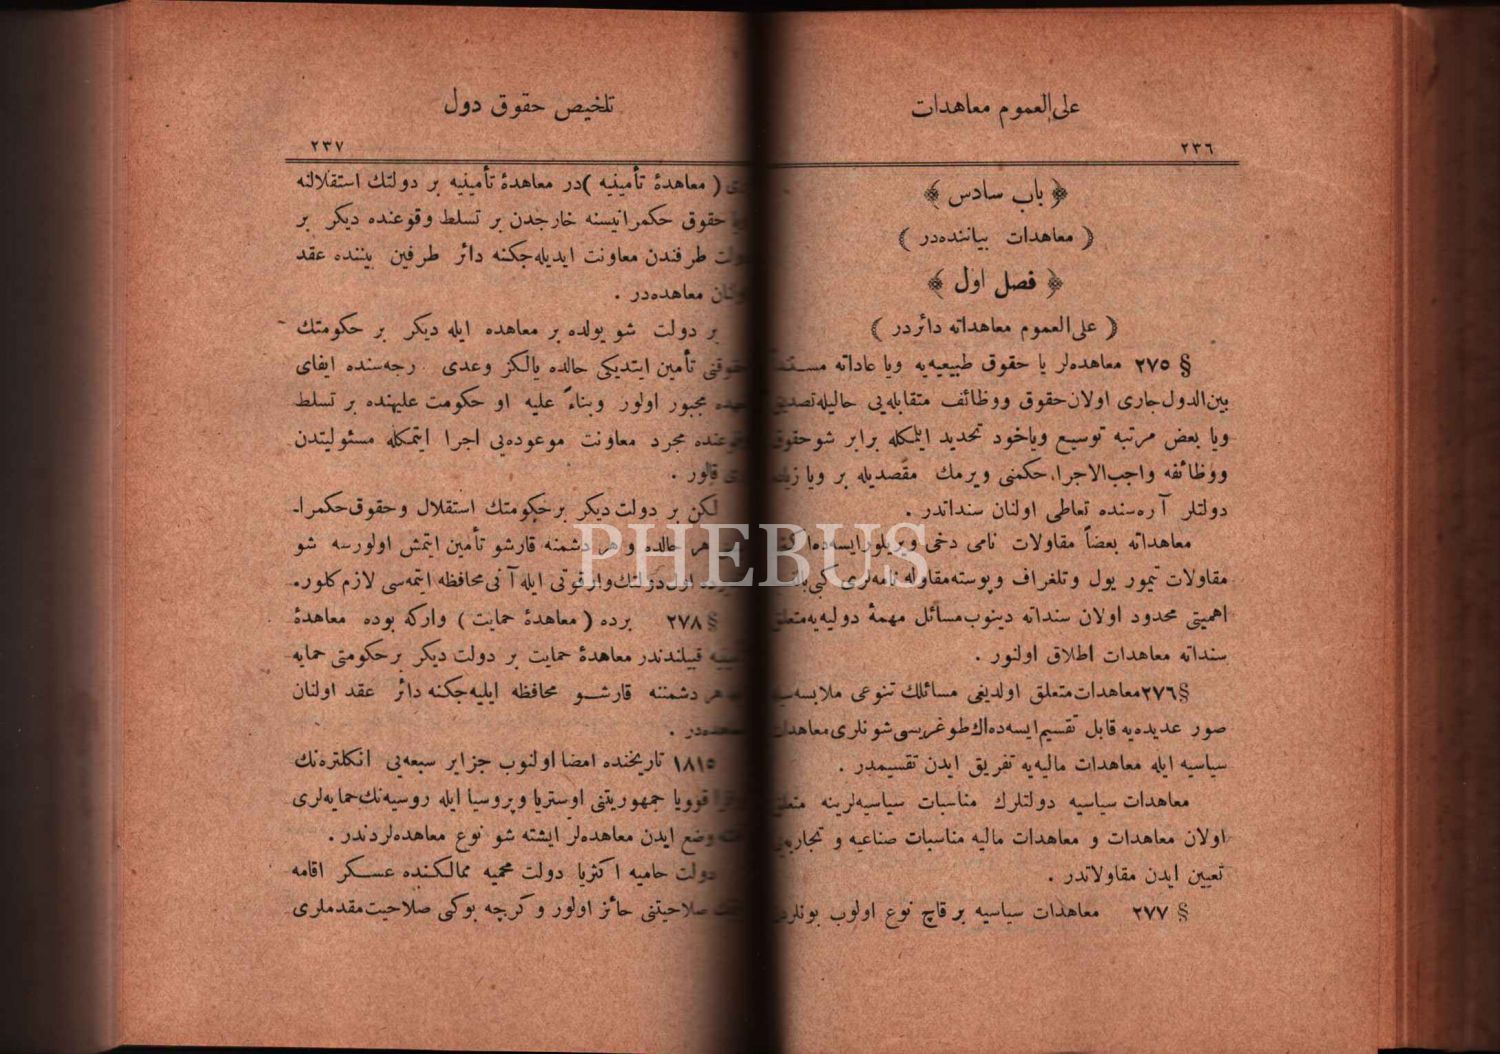 علی العموم معاهدات
٢٣٦
باب سادس
( معاهدات بیاننده‌در )
فصل اول
( علی العموم معاهداته دائردر )
§ ٢٧٥ معاهده‌لر یا حقوق طبیعیه‌یه ویا عاداته
بین الدول جاری اولان حقوق ووظائف متقابله‌یی حالیله تصدیق
ویا بعض مرتبه توسیع ویاخود تحدید ایلمکله برابر شو حقوق
ووظائفه واجب الاجرا حکمنی ویرمك مقصدیله بر ویا
دولتلر آره‌سنده تعاطی اولنان سنداتدر .
معاهداته بعضاً مقاولات نامی دخی ویریلور ایسه‌ده
مقاولات تیمور یول وتلغراف وپوسته مقاوله نامه‌لری کبی
اهمیتی محدود اولان سنداته دینوب مسائل مهمهٔ دولیه‌یه متعلق
سنداته معاهدات اطلاق اولنور .
§ ٢٧٦ معاهدات متعلق اولدیغی مسائلك تنوعی ملابسه‌سیله
صور عدیده‌یه قابل تقسیم ایسه‌ده اك طوغریسی شونلری معاهدات
سیاسیه ایله معاهدات مالیه‌یه تفریق ایدن تقسیمدر .
معاهدات سیاسیه دولتلرك مناسبات سیاسیه‌لرینه متعلق
اولان معاهدات و معاهدات مالیه مناسبات صناعیه و تجاریه‌یی
تعیین ایدن مقاولاتدر .
§ ٢٧٧ معاهدات سیاسیه بر قاچ نوع اولوب بونلردن
تلخیص حقوق دول
٢٣٧
( معاهدهٔ تأمینیه ) در معاهدهٔ تأمینیه بر دولتك استقلالنه
حقوق حکمرانیسنه خارجدن بر تسلط وقوعنده دیکر بر
طرفندن معاونت ایدیله‌جکنه دائر طرفین بیننده عقد
معاهده‌در .
بر دولت شو یولده بر معاهده ایله دیکر بر حکومتك
حقوقنی تأمین ایتدیکی حالده یالکز وعدی رجه‌سنده ایفای
مجبور اولور وبناءً علیه او حکومت علیهنده بر تسلط
وقوعنده مجرد معاونت موعوده‌یی اجرا ایتمکله مسئولیتدن
قالور .
لکن بر دولت دیکر بر حکومتك استقلال وحقوق حکمرا-
هر حالده و هر دشمنه قارشو تأمین ایتمش اولورسه شو
اول دولتك وار قوتی ایله آنی محافظه ایتمه‌سی لازم کلور.
§ ٢٧٨ برده ( معاهدهٔ حمایت ) وارکه بوده معاهدهٔ
قبیلندندر معاهدهٔ حمایت بر دولت دیکر بر حکومتی حمایه
هر دشمننه قارشو محافظه ایلیه‌جکنه دائر عقد اولنان
١٨١٥ تاریخنده امضا اولنوب جزایر سبعه‌یی انکلتره‌نك
قراقوویا جمهوریتنی اوستریا وپروسیا ایله روسیه‌نك حمایه‌لری
وضع ایدن معاهده‌لر ایشته شو نوع معاهده‌لردندر .
دولت حامیه اکثریا دولت محمیه ممالکنده عسکر اقامه
صلاحیتنی حائز اولور وکرچه بوکی صلاحیت مقدملری
PHEBUS